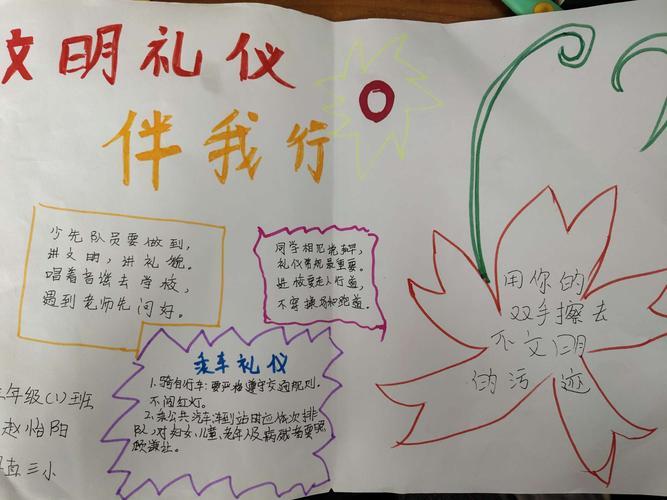 文明礼仪
伴我行
少先队员要做到，
讲文明，讲礼貌。
唱着着去学校，
遇到老师先问好。
同学相见说声早，
礼仪常规最重要。
进校要走人行道，
不穿操场和跑道。
乘车礼仪
1.骑自行车：要严格遵守交通规则。
不闯红灯。
2.乘公共汽车：车到站时应依次排
队，对妇女、儿童、老年人及病残者要照
顾谦让。
用你的
双手擦去
不文明
的污迹
年级(1)班
赵怡阳
三小